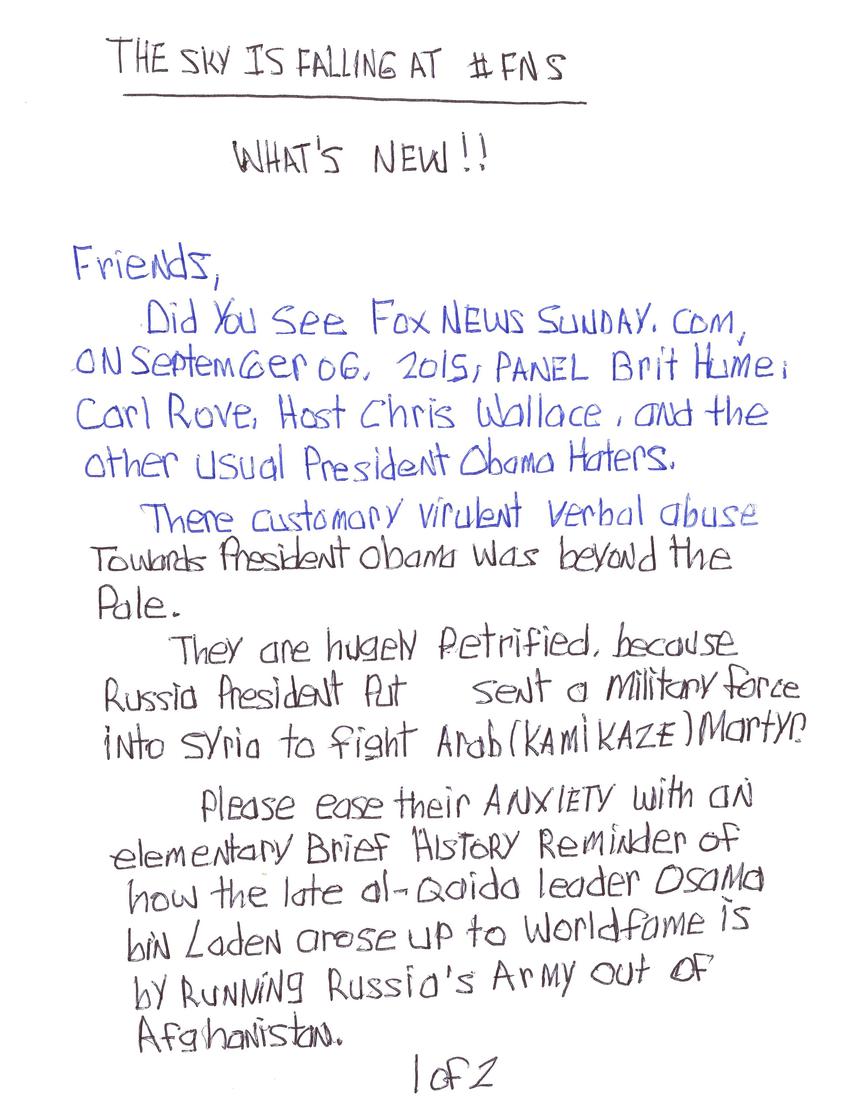 THE SKY IS FALLING AT #FNS
WHAT'S NEW!!
Friends,
Did You See Fox NEWS SUNDAY. COM,
ON September 06, 2015, PANEL Brit Hume,
Carl Rove, Host Chris Wallace, and the
other usual President Obama Haters.
There customary virulent verbal abuse
Towards President Obama was beyond the
Pale.
They are hugely Petrified, because
Russia President Put sent a Military force
into Syria to fight Arab (KAMIKAZE) Martyr?
Please ease their ANXIETY with an
elementary Brief HISTORY Reminder of
how the late al-Qaida leader Osama
bin Laden arose up to Worldfame is
by RUNNING Russia's Army out of
Afghanistan.
1 of 2